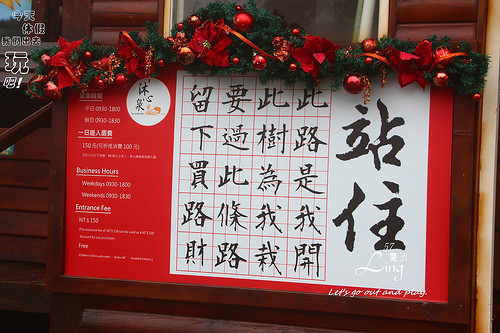 今天
休假
我們出去
玩
啊!
休心泉
營業時間
平日 0930-1800
假日 0930-1830
一日遊入園費
150 元(可折抵消費 100 元)
Business Hours
Weekdays 0930-1800
Weekends 0930-1830
Entrance Fee
NT $ 150
Free
站住
此路是我開
此樹為我栽
要過此條路
留下買路財
57
Ling
Let's go out and play.